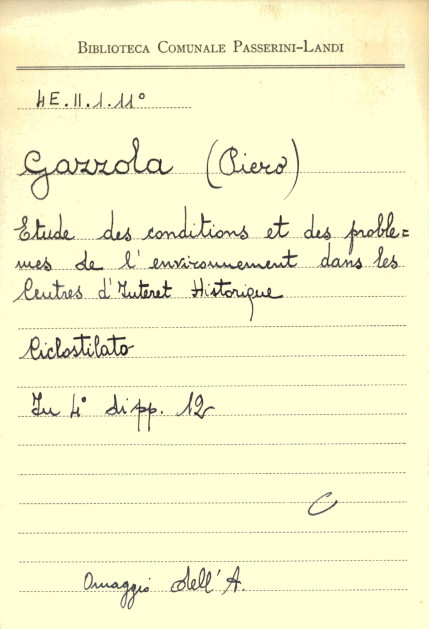 BIBLIOTECA COMUNALE PASSERINI-LANDI
4E.II.1.11°
Gazzola (Piero)
Etude des conditions et des proble=
mes de l'environnement dans les
Centres d'Interet Historique
Ciclostilato
In 4° di pp. 12
C
Omaggio dell'A.